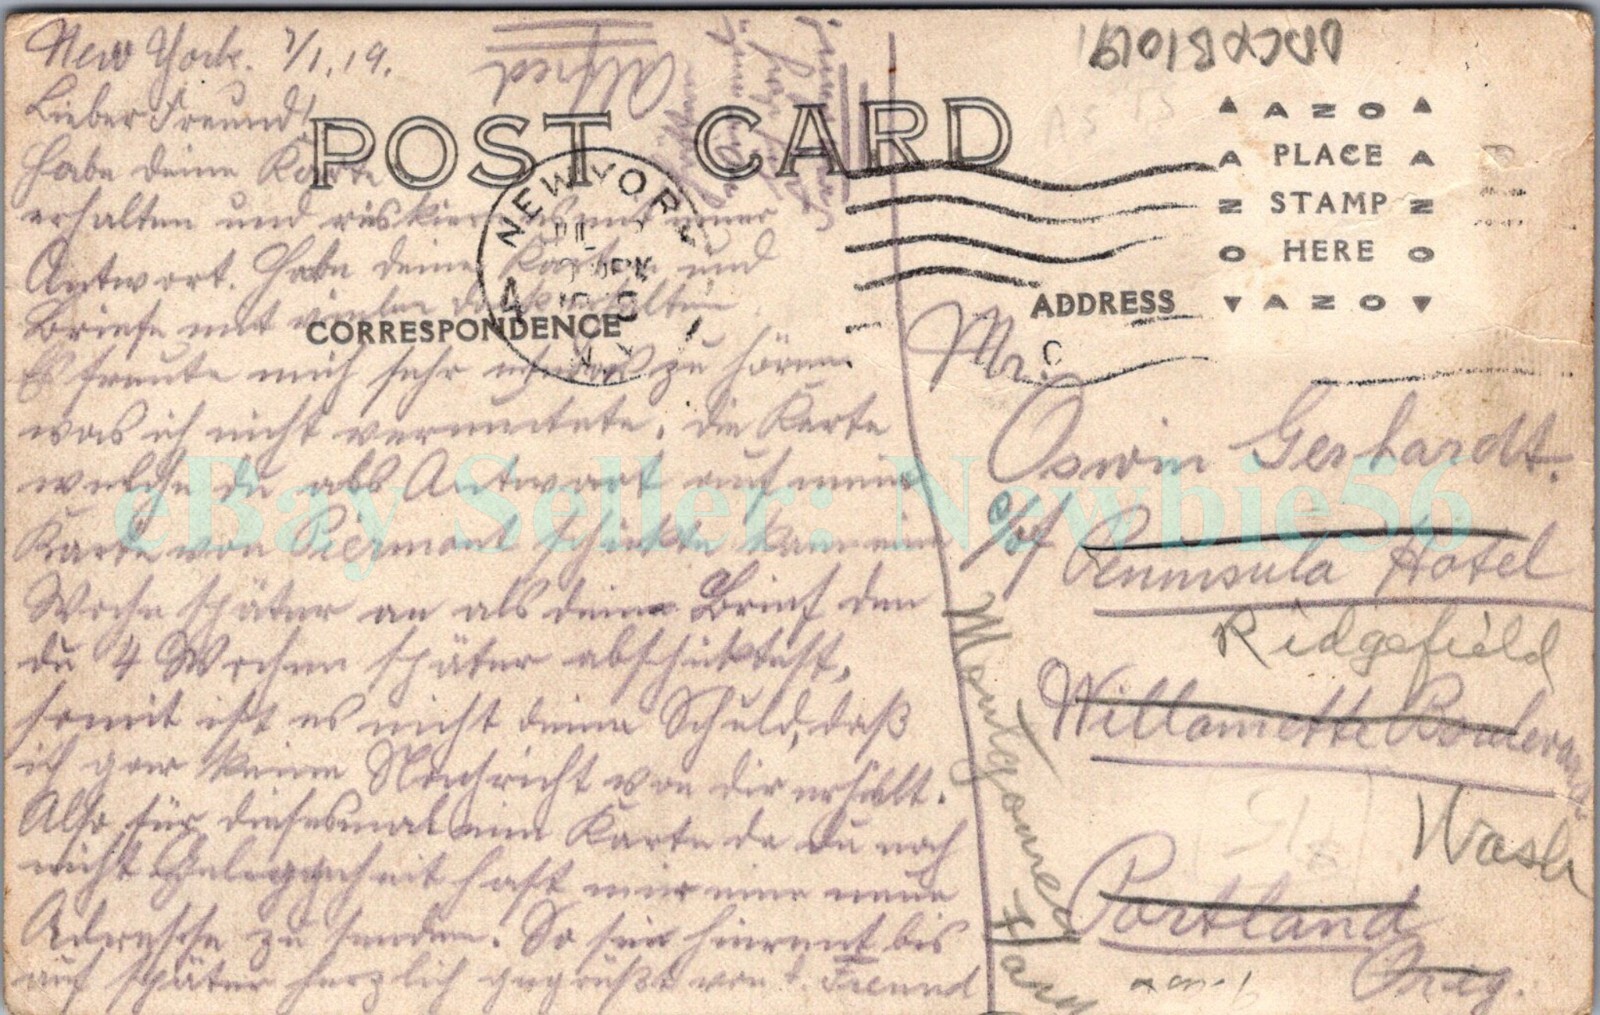 New York. 7/1.19.
Lieber Freund!
Habe deine Karte
erhalten und riskiere es mit einer
Antwort. Habe deine Karten und
Briefe mit vielen Dank erhalten
Es freute mich sehr etwas zu hören
was ich nicht vermutete. Die Karte
welche du als Antwort auf meine
Karte von Piermont schickte kam eine
Woche später an als deine Brief den
du 4 Wochen später abschicktest,
somit ist es nicht deine Schuld, daß
ich gar keine Nachricht von dir erhielt.
Also für diesesmal eine Karte da du noch
nicht Gelegenheit hast mir eine neue
Adresse zu senden. So sei hiermit bis
auf später herzlich gegrüßt von d. Freund
Alfred
POST CARD
CORRESPONDENCE
ADDRESS
NEW YORK
N.Y.
A AZO A
A PLACE A
N STAMP N
O HERE O
▼ AZO ▼
Mr.
Oswin Gerhardt.
c/of Peninsula Hotel
Ridgefield
Willamette Boulevard
Wash
Portland
Oreg.
Montgomery
DPCXB1019
eBay Seller: Newbie56